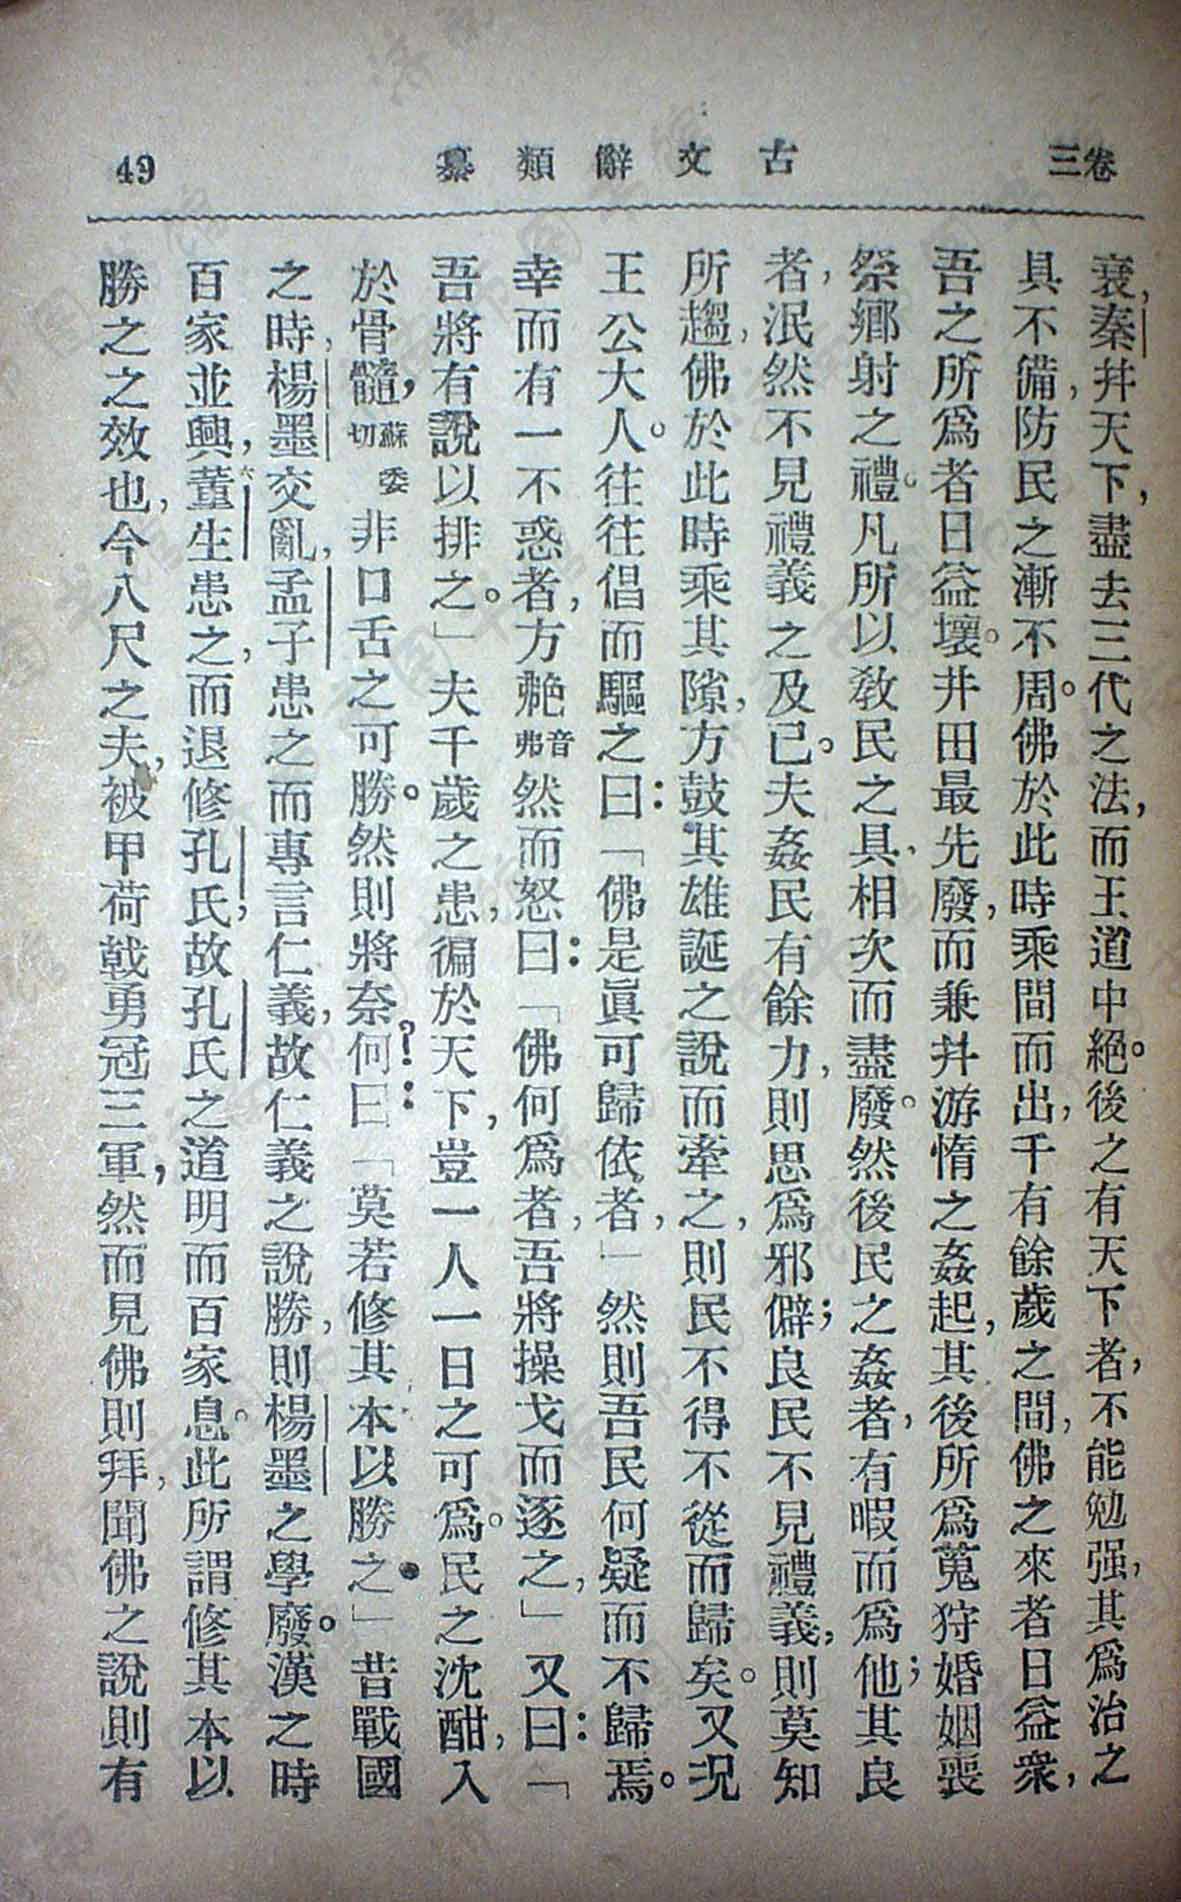 卷三
古文辭類纂
49
衰，秦幷天下，盡去三代之法，而王道中絕。後之有天下者，不能勉强，其爲治之
具不備，防民之漸不周。佛於此時乘間而出，千有餘歲之間，佛之來者日益衆，
吾之所爲者日益壞。井田最先廢，而兼幷游惰之姦起，其後所爲蒐狩婚姻喪
祭鄉射之禮。凡所以敎民之具，相次而盡廢。然後民之姦者，有暇而爲他；其良
者，泯然不見禮義之及已。夫姦民有餘力，則思爲邪僻；良民不見禮義，則莫知
所趨，佛於此時乘其隙，方鼓其雄誕之說而牽之，則民不得不從而歸矣。又況
王公大人。往往倡而驅之曰：「佛是眞可歸依者，」然則吾民何疑而不歸焉。
幸而有一不惑者，方艴音弗然而怒曰：「佛何爲者，吾將操戈而逐之，」又曰：「
吾將有說以排之。」夫千歲之患，徧於天下，豈一人一日之可爲。民之沈酣，入
於骨髓，蘇委切非口舌之可勝。然則將奈何？曰：「莫若修其本以勝之」昔戰國
之時，楊墨交亂，孟子患之而專言仁義，故仁義之說勝，則楊墨之學廢。漢之時
百家並興，董生六患之，而退修孔氏，故孔氏之道明而百家息。此所謂修其本以
勝之之效也，今八尺之夫，被甲荷戟，勇冠三軍，然而見佛則拜，聞佛之說則有